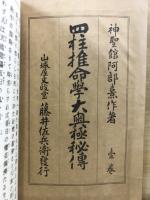 神聖館阿部熹作著
壹卷
四柱推命學大奥極秘傳
山城屋文政堂 藤井佐兵衞發行